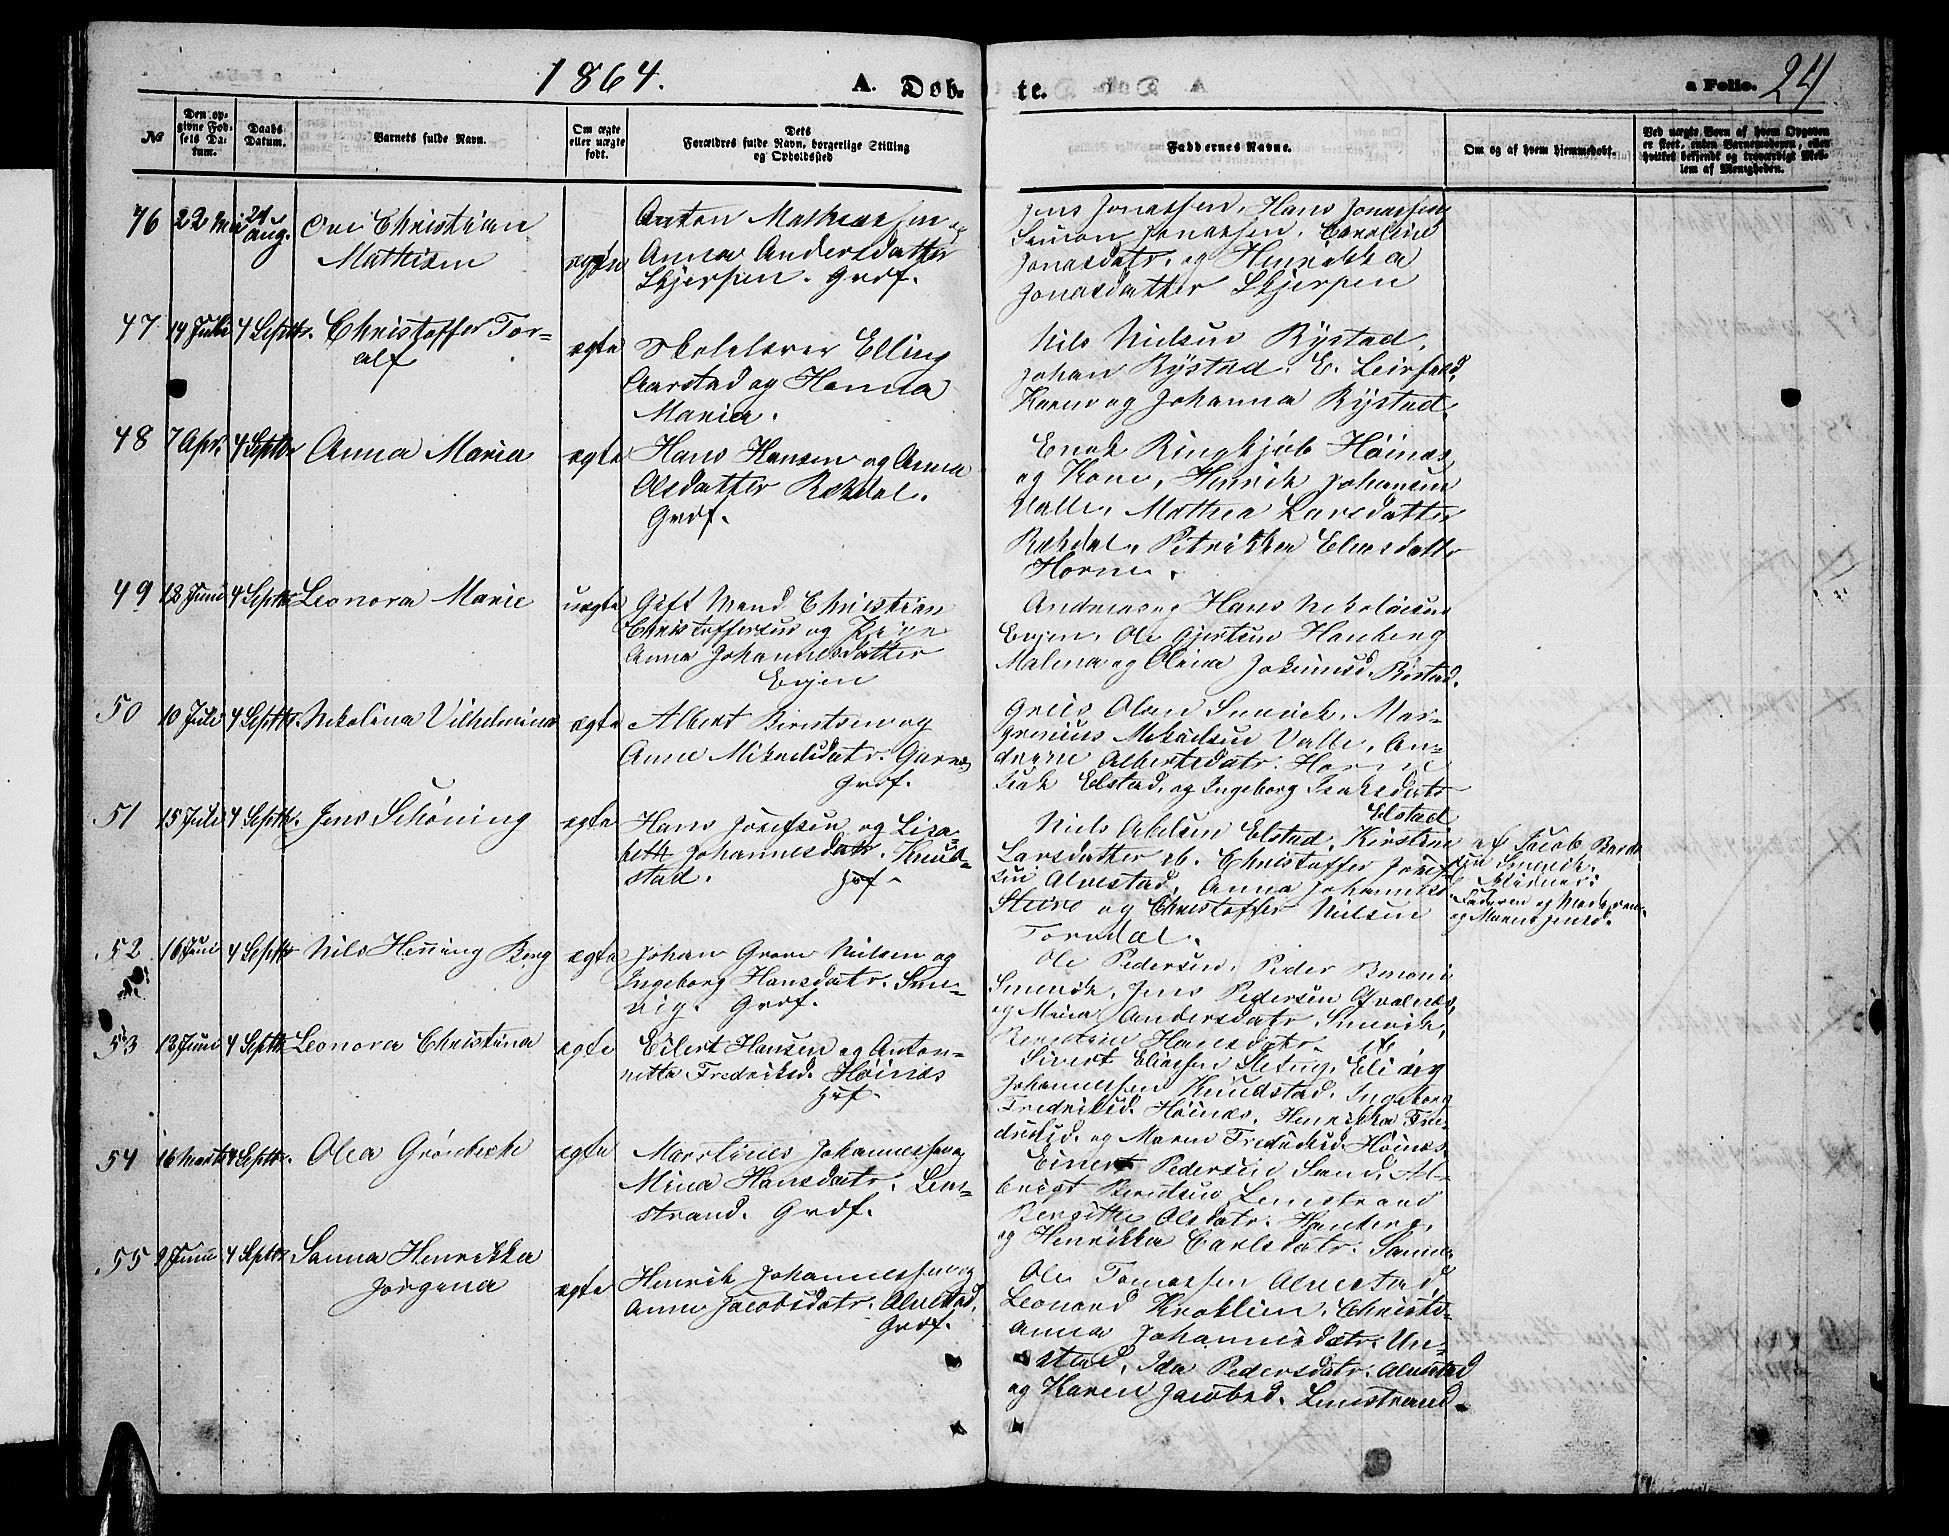 1864.
A. Døb-
te.
a Folio. 24
№
Den op-
givne Fød-
sels Da-
tum.
Daabs
Datum.
Barnets fulde Navn.
Om ægte
eller uægte
født.
Dets
Forældres fulde Navn, borgerlige Stilling
og Opholdssted
Faddernes Navne.
Om og af hvem hjemmedøbt.
Ved uægte Børn af hvem Opgaven
er skeet, enten Barnemoderen, eller
hvilket bekjendt og troværdigt Med-
lem af Menigheden.
46 22 Mai 21 Aug. Ove Christian
Mathisen
ægte
Anton Mathiassen og
Anna Andersdatter
Skjerpen. Grdf.
Jens Jonassen, Hans Jonassen,
Simon Jonassen, Caroline
Jonasdatr. og Henrikka
Jonasdatter Skjerpen
47 14 Juli 4 Septbr. Christoffer Tor-
alf
ægte
Skolelærer Elling
Aarstad og Hanna
Maria.
Nils Nielsen Rystad,
Johan Rystad, E. Leirfald,
Karen og Johanna Rystad.
48 7 Apr. 4 Septbr Anna Maria
ægte
Hans Hansen og Anna
Olsdatter Rekdal.
Grdf.
Enok Ringkjøb Høinæs
og Kone, Henrik Johansen
Valle, Mathea Larsdatter
Rekdal, Petrikka Eliasdattr
Horn.
49 12 Juni 4 Septbr Leonora Marie
uægte
Gift Mand Christian
Christoffersen og Pige
Anna Johannesdatter
Evjen
Andreas og Hans Nikolaisen
Evjen, Ole Gjertsen Hanberg
Malena og Olina Jokumsd. Rystad.
50 10 Juli 4 Septbr. Nikolina Vilhelmina
ægte
Albert Berntsen og
Anne Mikaelsdatr. Garnes
Grdf.
Greis Olsen Smevik, Mar-
grenius Mikaelsen Valle, An-
drene Albertsdatr. Horn
Isak Elstad, og Ingeborg Isaksdatr
Elstad
51 15 Juli 4 Septbr. Jens Schøning
ægte
Hans Josefsen og Lisa-
beth Johannesdatr. Knud-
stad. Hsf.
Niels Abelsen Elstad, Kirstina
Larsdatter ib. Christoffer Josef-
sen Alvestad, Anna Johannesd.
Steiro og Christoffer Nilsen
Torvdal.
af Jacob
Smevik.
Vidner:
Faderen og Moderen
og Maren Jensd.
52 16 Juni 4 Septbr Nils Henning Berg
ægte
Johan Grove Nilsen og
Ingeborg Hansdatr. Sme-
vig. Grdf.
Ole Pedersen, Peder
Smevik, Jens Pedersen
og Mina Andersdatr. Smevik,
Berntine Hansdatr. ib.
53 13 Juni 4 Septbr Leonora Christina
ægte
Eilert Hansen og Anton-
netta Fredriksd. Høinæs
Hsf.
Sivert Eliassen Sletten, Eli og
Johannessen Knudstad, Ingeborg
Fredriksd. Høinæs, Henrikka Fre-
driksd. og Maren Fredriksd. Høinæs.
54 16 Marts 4 Septbr. Olea Grønbech
ægte
Martines Johannessen og
Mina Hansdatr. Lem-
strand. Grdf.
Einert Pedersen Sand, Al-
brigt Berntsen Lemstrand
Bergithe Olsdatr. Hanberg,
og Henrikka Carlsdatr. Sannes
55 9 Juni 4 Septbr Sanna Henrikka
Jørgena
ægte
Henrik Johannessen og
Anne Jacobsdatr. Alvestad,
Grdf.
Ole Tomassen Alvestad,
Leonard Kroklien, Christi-
anna Johannesdatr. Un-
stad, Ida Pedersdatr. Alvestad
og Karen Jacobsd. Lemstrand.